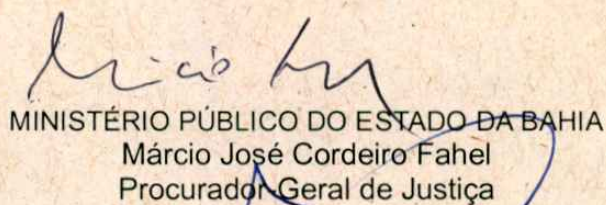 MINISTÉRIO PÚBLICO DO ESTADO DA BAHIA
Márcio José Cordeiro Fahel
Procurador-Geral de Justiça